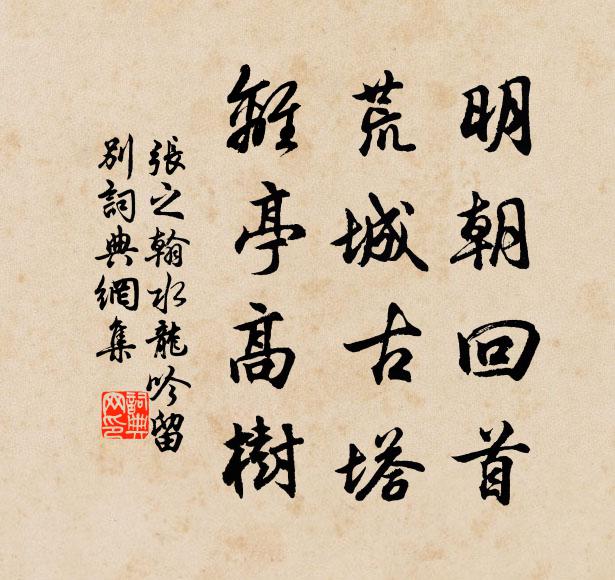 明朝回首
荒城古塔
離亭高樹
張之翰水龍吟留
別詞典網集
詞典网印